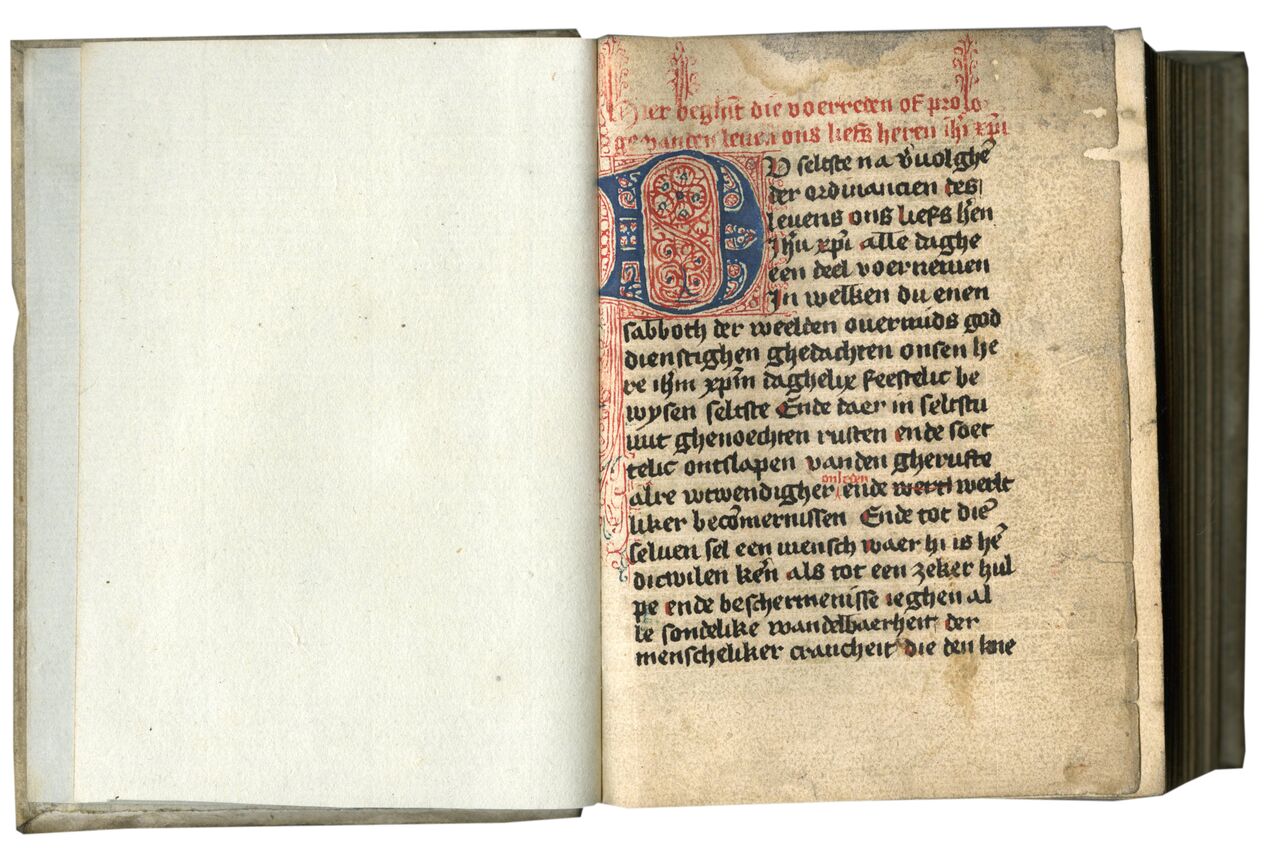 Hier beghīt die voerreden of prolo
ge vanden leuen ons liefs heren ih̄u xp̄i
DU selstste na v̄uolghē
der ordinancien des
leuens ons liefs h̄en
Ih̄u xp̄i alle daghe
een deel voernemen
In welken du enen
sabboth der weelden ouermids god
dienstighen ghedachten onsen he
re ih̄m xp̄m daghelix feestelic be
wysen selstste Ende daer in selstu
mit ghenoechten rusten ende soet
telic ontslapen vanden gherufte
alre wtwendigher onleden ende werlt
liker becōmernissen Ende tot dier
seluen sel een mensch waer hi is hē
dicwilen kēn als tot een zeker hul
pe ende beschermenisse ieghen al
le sondelike wandelbaerheit der
menscheliker crancheit die den kne